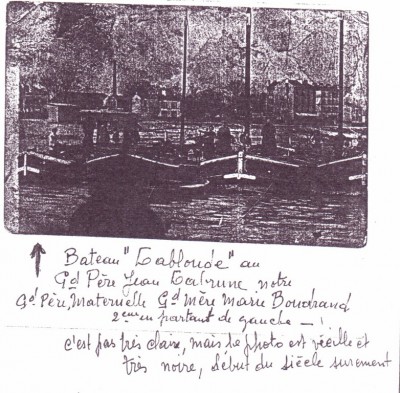 Bateau "La blonde" au
Gd Père Jean Labrune notre
Gd Père, Maternelle Gd Mère Marie Boudrand
2eme en partant de gauche — !
c'est pas très claire, mais la photo est vieille et
très noire, début du siècle surement